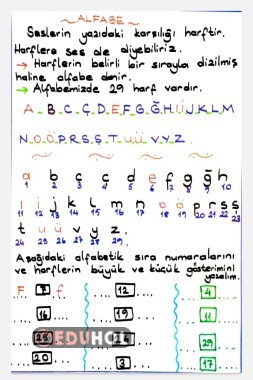 ~ ALFABE ~
Seslerin yazıdaki karşılığı harftir.
Harflere ses de diyebiliriz.
→ Harflerin belirli bir sırayla dizilmiş
haline alfabe denir.
→ Alfabemizde 29 harf vardır.
A B C Ç D E F G Ğ H I İ J K L M
N O Ö P R S Ş T U Ü V Y Z
a b c ç d e f g ğ h
1 2 3 4 5 6 7 8 9 10
ı i j k l m n o ö p r s ş
11 12 13 14 15 16 17 18 19 20 21 22 23
t u ü v y z.
24 25 26 27 28 29
Aşağıdaki alfabetik sıra numaralarını
ve harflerin büyük ve küçük gösterimini
yazalım.
F 7 f .... 12 .... 4
.... 16 .... 19 .... 11
EDUHOL 29
.... 20 .... 3 .... 17